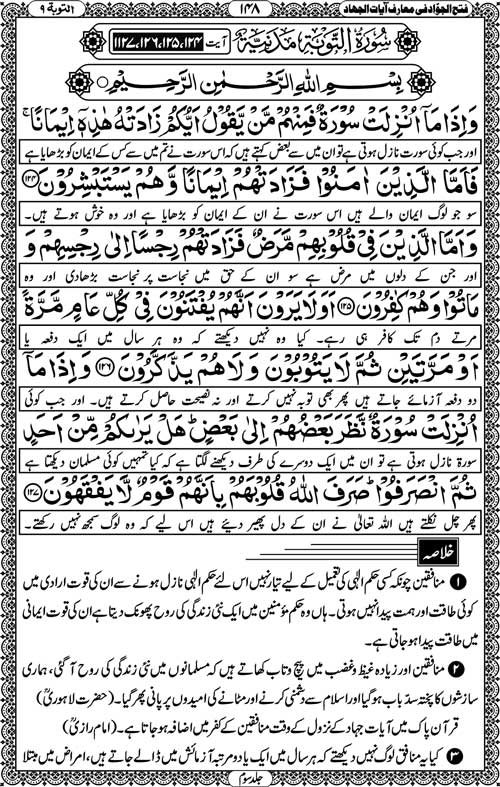 فتح الجوّاد فی معارف آیات الجهاد ۱۴۸ التوبة ۹
سُوْرَةُ التَّوْبَةِ مَدَنِيَّةٌ آیت ۱۲۴، ۱۲۵، ۱۲۶، ۱۲۷
بِسْمِ اللّٰهِ الرَّحْمٰنِ الرَّحِيْمِ
وَاِذَا مَاۤ اُنْزِلَتْ سُوْرَةٌ فَمِنْهُمْ مَّنْ يَّقُوْلُ اَيُّكُمْ زَادَتْهُ هٰذِهٖۤ اِيْمَانًا ۚ
اور جب کوئی سورت نازل ہوتی ہے تو ان میں سے بعض کہتے ہیں کہ اس سورت نے تم میں سے کس کے ایمان کو بڑھایا ہے
فَاَمَّا الَّذِيْنَ اٰمَنُوْا فَزَادَتْهُمْ اِيْمَانًا وَّهُمْ يَسْتَبْشِرُوْنَ ۱۲۴
سو جو لوگ ایمان والے ہیں اس سورت نے ان کے ایمان کو بڑھایا ہے اور وہ خوش ہوتے ہیں۔
وَاَمَّا الَّذِيْنَ فِيْ قُلُوْبِهِمْ مَّرَضٌ فَزَادَتْهُمْ رِجْسًا اِلٰى رِجْسِهِمْ وَ
اور جن کے دلوں میں مرض ہے سو ان کے حق میں نجاست پر نجاست بڑھادی اور وہ
مَاتُوْا وَهُمْ كٰفِرُوْنَ ۱۲۵ اَوَلَا يَرَوْنَ اَنَّهُمْ يُفْتَنُوْنَ فِيْ كُلِّ عَامٍ مَّرَّةً
مرتے دم تک کافر ہی رہے۔ کیا وہ نہیں دیکھتے کہ وہ ہر سال میں ایک دفعہ یا
اَوْ مَرَّتَيْنِ ثُمَّ لَا يَتُوْبُوْنَ وَلَا هُمْ يَذَّكَّرُوْنَ ۱۲۶ وَاِذَا مَاۤ
دو دفعہ آزمائے جاتے ہیں پھر بھی توبہ نہیں کرتے اور نہ نصیحت حاصل کرتے ہیں۔ اور جب کوئی
اُنْزِلَتْ سُوْرَةٌ نَّظَرَ بَعْضُهُمْ اِلٰى بَعْضٍ ۗ هَلْ يَرٰىكُمْ مِّنْ اَحَدٍ
سورۃ نازل ہوتی ہے تو ان میں ایک دوسرے کی طرف دیکھنے لگتا ہے کہ کیا تمہیں کوئی مسلمان دیکھتا ہے
ثُمَّ انْصَرَفُوْا ۗ صَرَفَ اللّٰهُ قُلُوْبَهُمْ بِاَنَّهُمْ قَوْمٌ لَّا يَفْقَهُوْنَ ۱۲۷
پھر چل نکلتے ہیں اللہ تعالٰی نے ان کے دل پھیر دیئے ہیں اس لیے کہ وہ لوگ سمجھ نہیں رکھتے۔
خلاصہ
۱ منافقین چونکہ کسی حکم الٰہی کی تعمیل کے لیے تیار نہیں اس لئے حکم الٰہی نازل ہونے سے ان کی قوت ارادی میں
کوئی طاقت اور ہمت پیدا نہیں ہوتی۔ ہاں وہ حکم مؤمنین میں ایک نئی زندگی کی روح پھونک دیتا ہے ان کی قوت ایمانی
میں طاقت پیدا ہو جاتی ہے۔
۲ منافقین اور زیادہ غیظ و غضب میں پیچ و تاب کھاتے ہیں کہ مسلمانوں میں نئی زندگی کی روح آگئی، ہماری
سازشوں کا پختہ سدّباب ہوگیا اور اسلام سے دشمنی کرنے اور مٹانے کی امیدوں پر پانی پھر گیا۔ (حضرت لاہوریؒ)
قرآن پاک میں آیات جہاد کے نزول کے وقت منافقین کے کفر میں اضافہ ہو جاتا ہے۔ (امام رازیؒ)
۳ کیا یہ منافق لوگ نہیں دیکھتے کہ ہر سال میں ایک یا دو مرتبہ آزمائش میں ڈالے جاتے ہیں، امراض میں مبتلا
جلد سوم